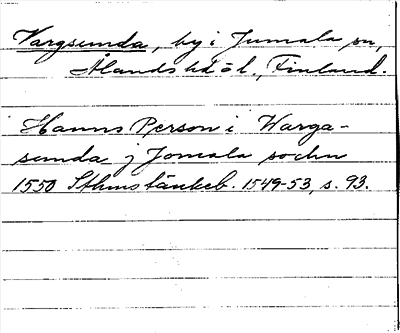 Vargsunda, by i Jomala sn,
Ålands hd o l., Finland.
Hanns Person i Warga-
sunda j Jomala sochn
1550 Sthms tänkeb. 1549-53, s. 93.